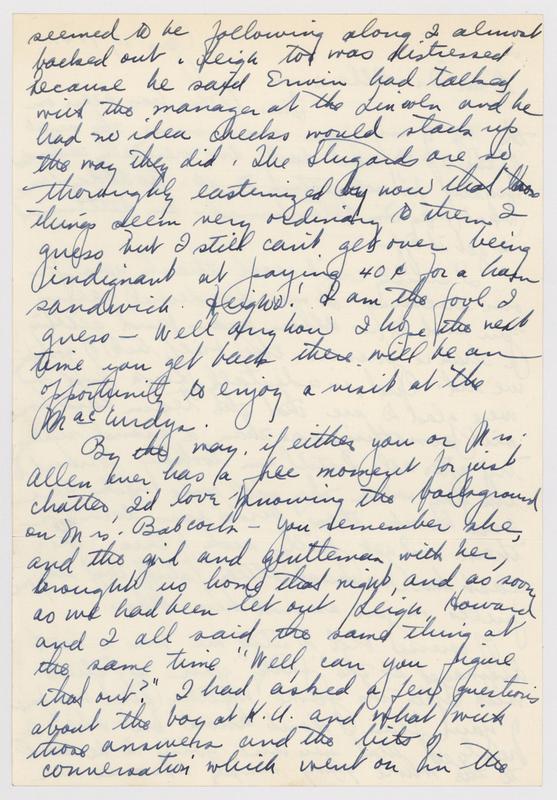 seemed to be following along I almost
backed out. Leigh too was distressed
because he said Erwin had talked
with the manager at the Lincoln and he
had no idea checks would stack up
the way they did. The Slugards are so
thoroughly easternized by now that those
things seem very ordinary to them I
guess but I still can't get over being
indignant at paying 40¢ for a ham
sandwich. Heighs! I am the fool I
guess — Well anyhow I hope the next
time you get back there will be an
opportunity to enjoy a visit at the
MacCurdys.
By the way, if either you or Mrs.
Allen ever has a free moment for just
chatter, I'd love knowing the background
on Mrs. Babcock — you remember she,
and the girl and gentleman with her,
brought us home that night, and as soon
as we had been let out Leigh, Howard
and I all said the same thing at
the same time "Well, can you figure
that out?" I had asked a few questions
about the boy at K.U. and what with
those answers and the bits of
conversation which went on in the